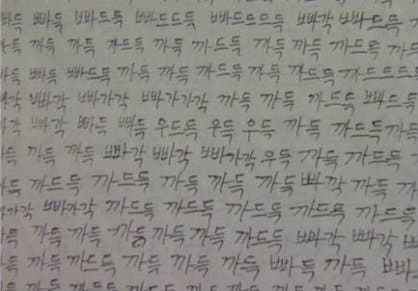 빠득 빠득 빠드득 빠드드득 빠드드드득 빠각 빠빠드득
까득 까득 까드득 까득 까득 까드득 까득
빠득 빠드득 까득 까득 까드득 까득 까드득 까드드드드
빠각 빠가각 빠가가각 까득 까득 까드득 빠드득
빠각 빠득 빠득 우드득 우득 우득 까득 까드득 까득
까득 까득 빠각 빠각 빠가각 우득 까득 까드득
까드득 까드득 까득 까득 까득 빠각 까득
빠가각 까드득 까드득 까드득 까드득
까득 까득 까득 까득 까득 까드득 빠각 빠각
까득 까드득 까득 까드득 까득 빠득 까득